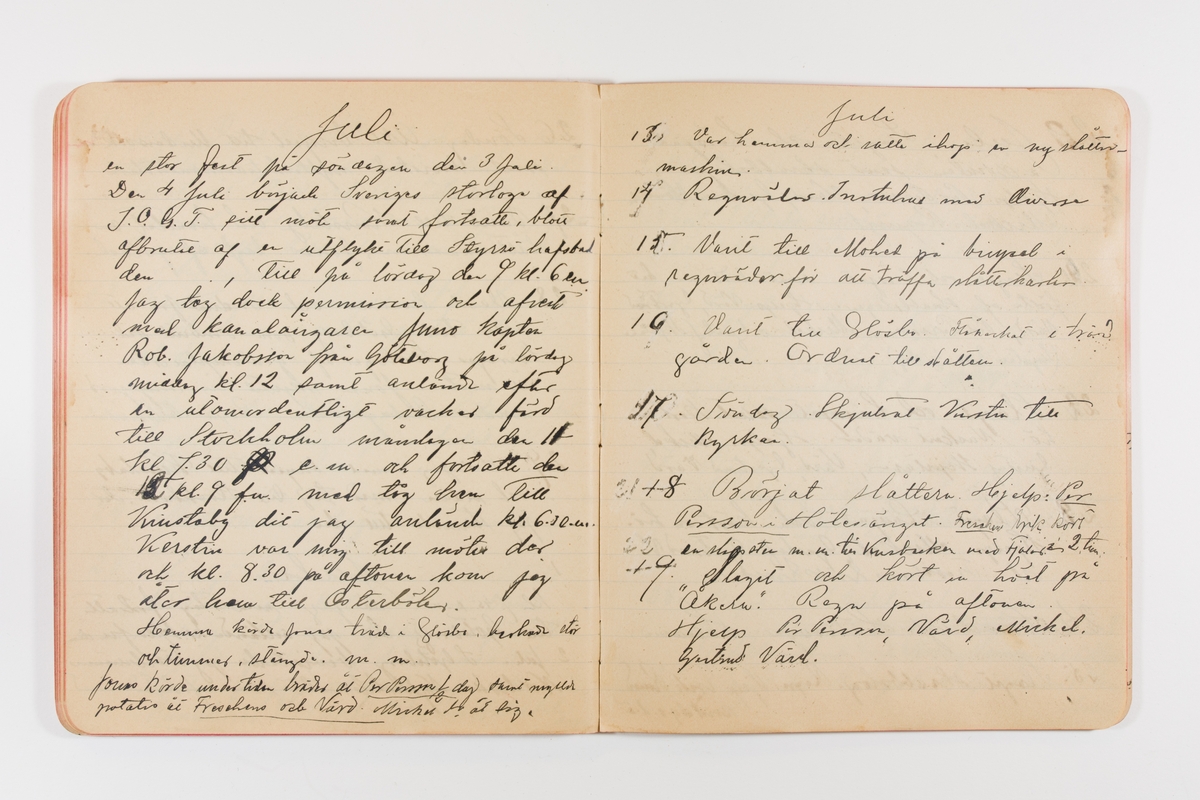 Juli
en stor fest på söndagen den 3 Juli.
Den 4 Juli började Sveriges storloge af
I.O.G.T. sitt möte samt fortsatte, blott
afbrutet af en utflykt till Styrsö hafsbad
den , till på lördag den 9 kl. 6 em
Jag tog dock permission och afreste
med kanalångaren Juno kapten
Rob. Jakobsson från Göteborg på lördag
middag kl. 12 samt anlände efter
en utomordentligt vacker färd
till Stockholm måndagen den 11
kl 7.30 e.m. och fortsatte den
12 kl. 9 f.m. med tåg hem till
Knutsby dit jag anlände kl. 6.30 e.m.
Kerstin var mig till mötes der
och kl. 8.30 på aftonen kom jag
åter hem till Österböle.
Hemma körde Jonas träd i Glösbo, barkade stör
och timmer, stängde. m. m.
Jonas körde under tiden bräder åt Per Persson 1/2 dag samt myllde
potatis åt Freschens och Vård. Mickel do åt sig.
Juli
13. Var hemma och satte ihop en ny slåtter-
maskin.
14 Regnväder. Inomhus med Diverse
15. Varit till Mohed på bicykel i
regnväder för att träffa slåtterkarlar.
16. Varit till Glösbo. Fläckat i träd
gården. Ordnat till slåttern.
17. Söndag. Skjutsat Kerstin till
Kyrkan.
18 Börjat slåttern. Hjelp: Per
Persson i Hölesänget. Freschen kört
m.m. med 2 tim.
19. Slagit och kört in höet på
"Åkern". Regn på aftonen.
Hjelp Per Persson, Vård, Mickel.
Gertrud Vård.